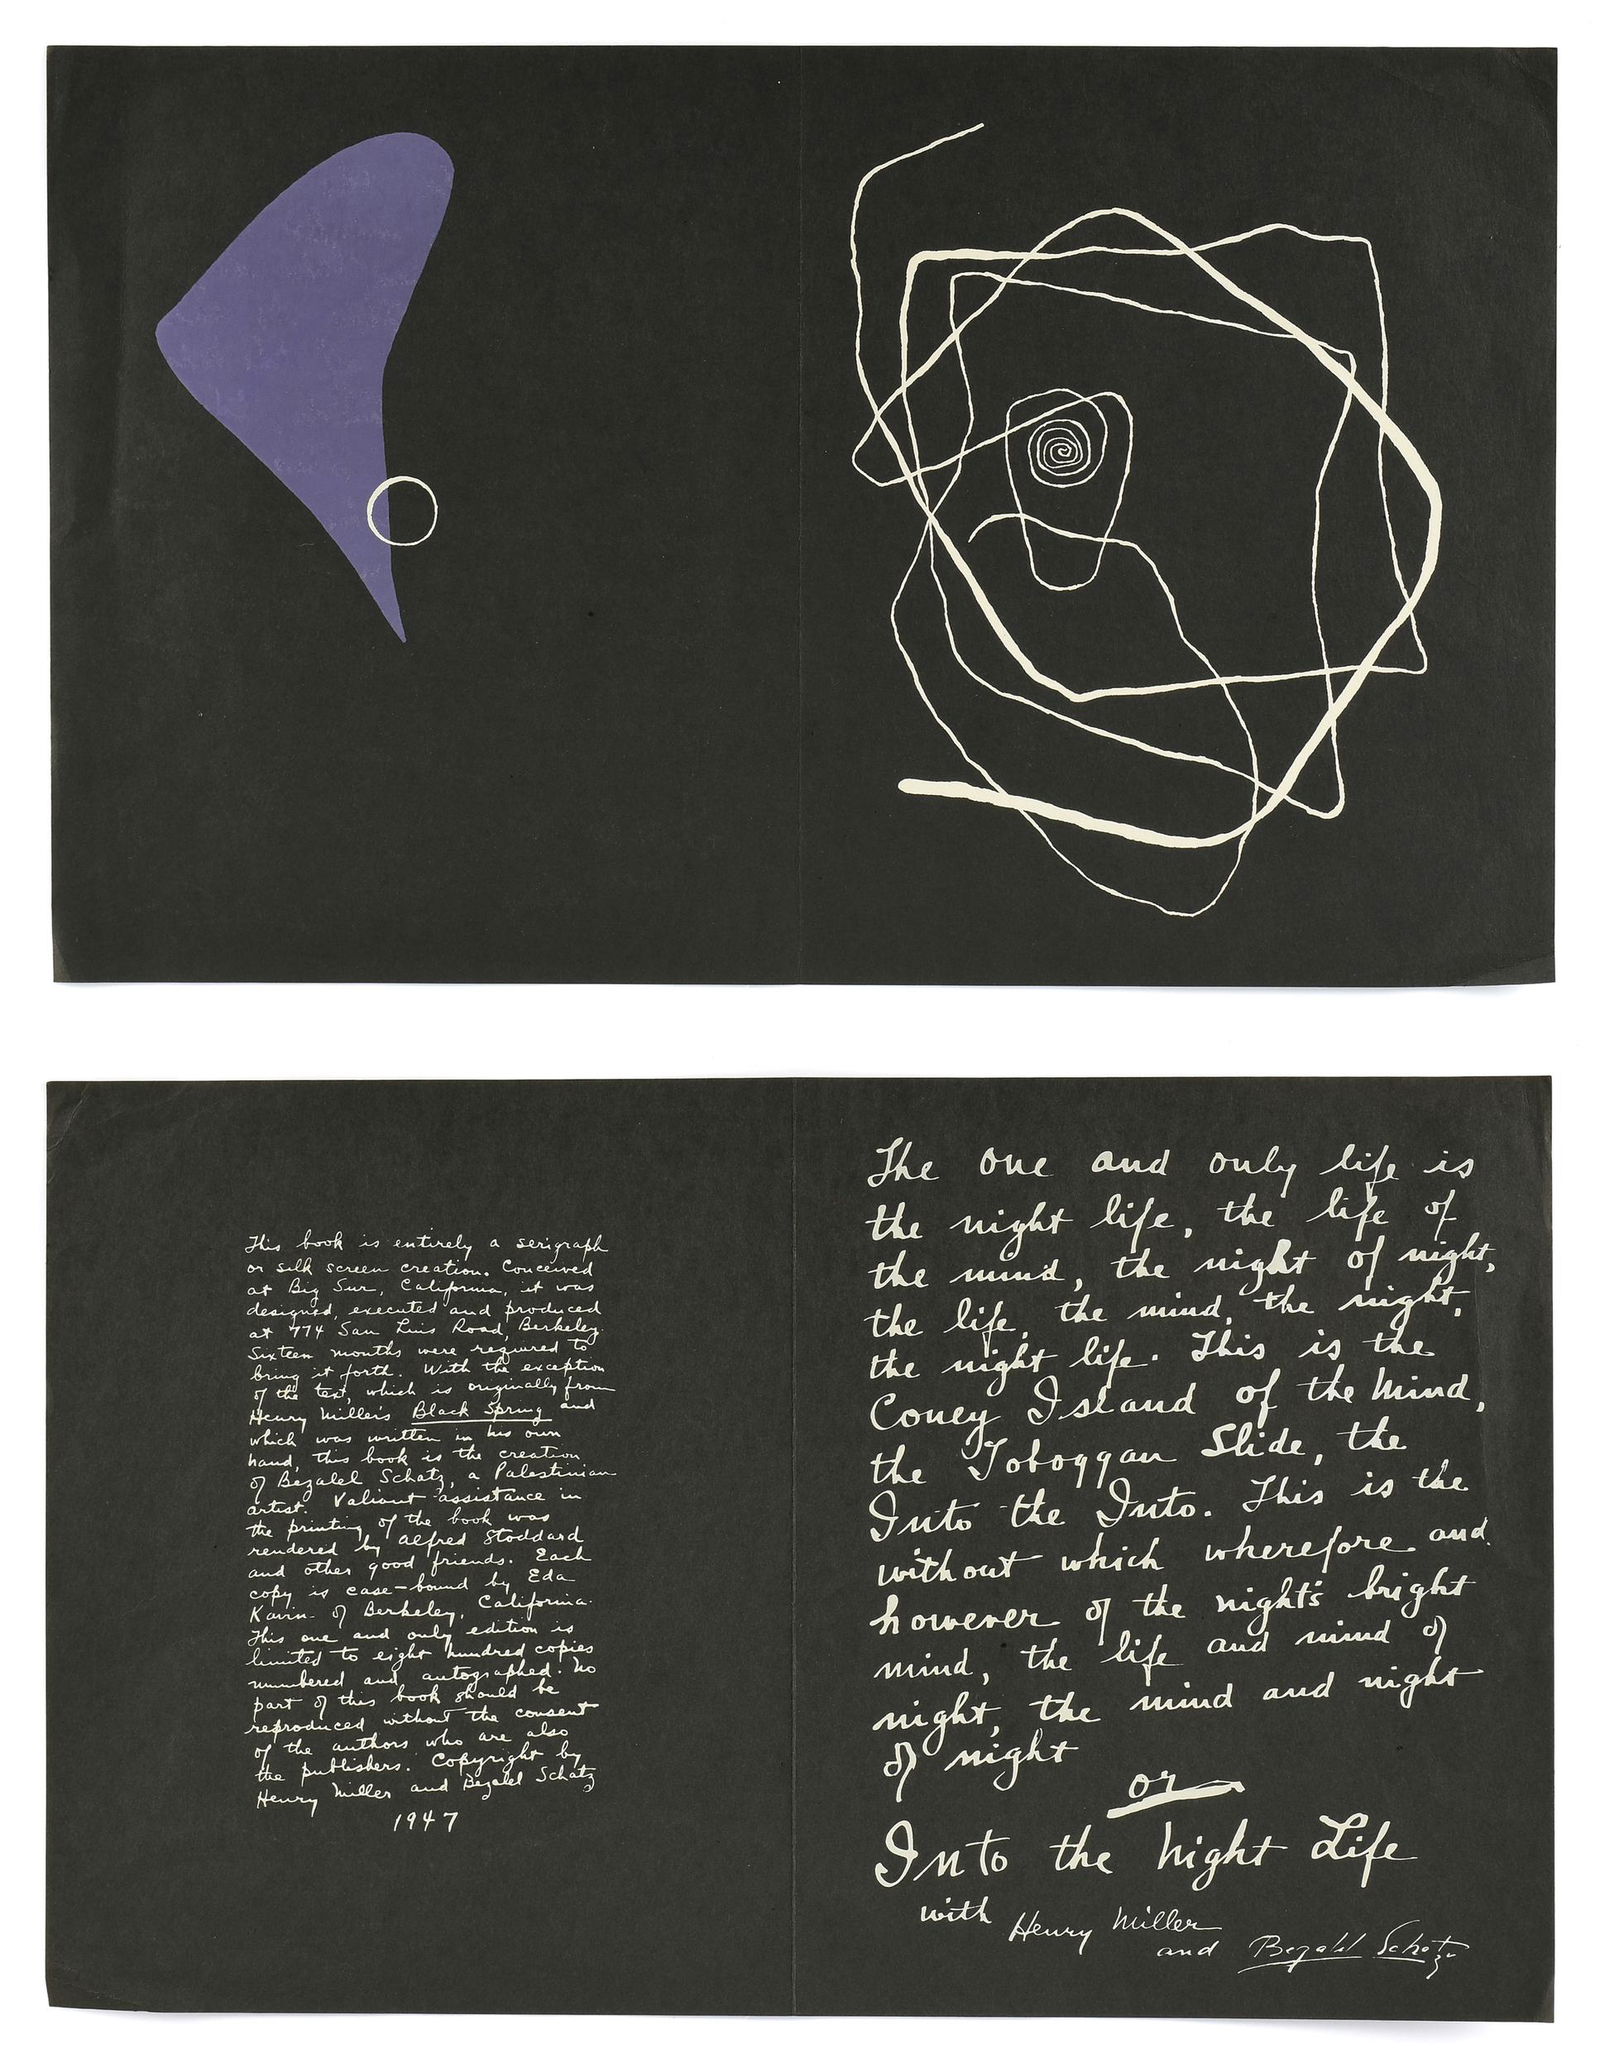 This book is entirely a serigraph
or silk screen creation. Conceived
at Big Sur, California, it was
designed, executed and produced
at 774 San Luis Road, Berkeley.
Sixteen months were required to
bring it forth. With the exception
of the text, which is originally from
Henry Miller's Black Spring and
which was written in his own
hand, this book is the creation
of Bezalel Schatz, a Palestinian
artist. Valiant assistance in
the printing of the book was
rendered by Alfred Stoddard
and other good friends. Each
copy is case-bound by Eda
Kavin of Berkeley, California.
This one and only edition is
limited to eight hundred copies
numbered and autographed. No
part of this book should be
reproduced without the consent
of the authors who are also
the publishers. Copyright by
Henry Miller and Bezalel Schatz
1947
The one and only life is
the night life, the life of
the mind, the night of night,
the life, the mind, the night,
the night life. This is the
Coney Island of the Mind,
the Toboggan Slide, the
Into the Into. This is the
without which wherefore and
however of the night's bright
mind, the life and mind of
night, the mind and night
of night
or
Into the Night Life
with Henry Miller
and Bezalel Schatz